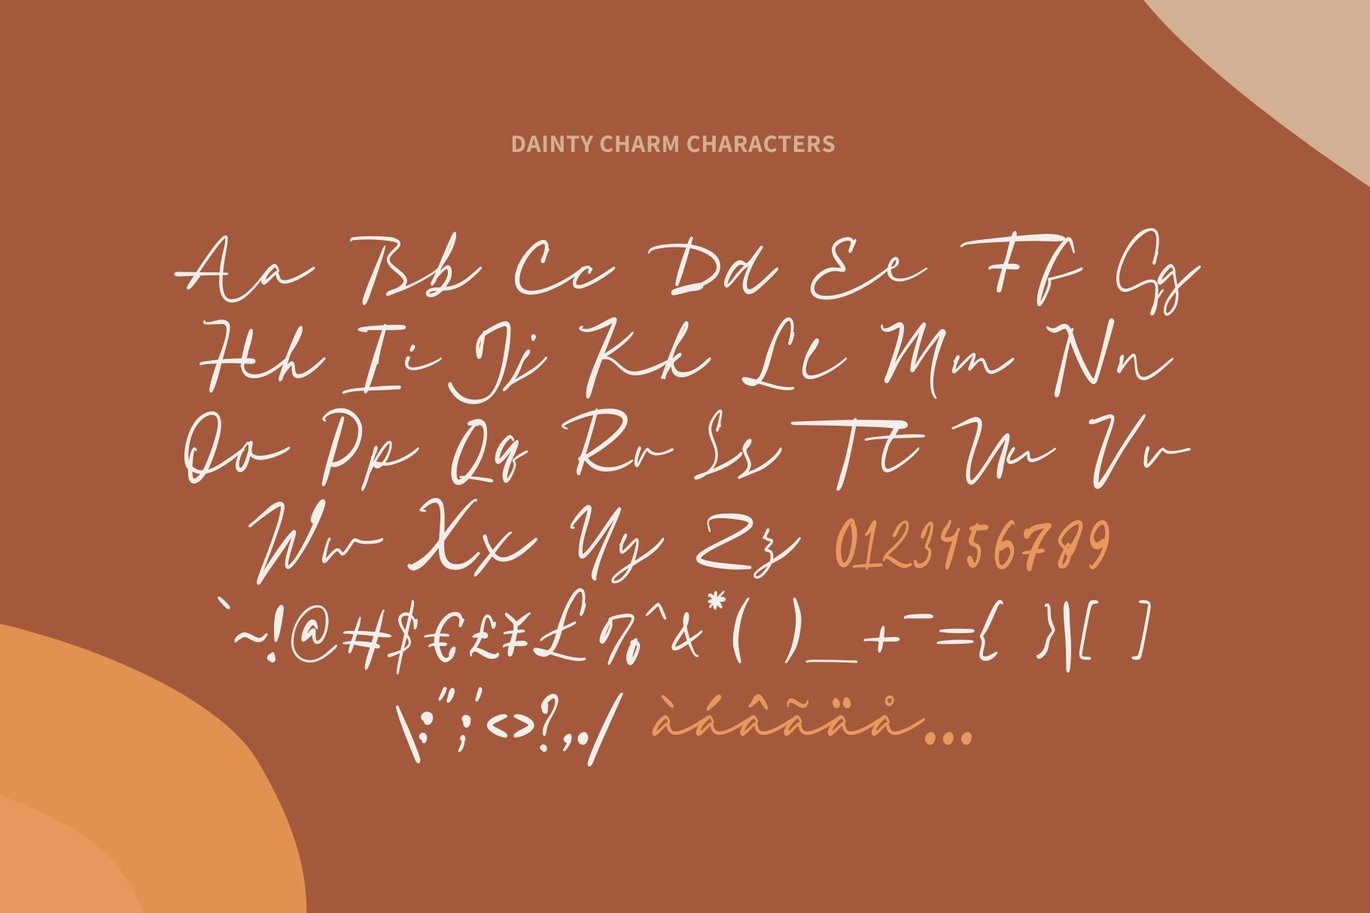 DAINTY CHARM CHARACTERS
Aa Bb Cc Dd Ee Ff Gg
Hh Ii Jj Kk Ll Mm Nn
Oo Pp Qq Rr Ss Tt Uu Vv
Ww Xx Yy Zz 0123456789
`~!@#$€£¥£%^&*()_+¯={}|[]
\:";'<>?,./ àáâãäå...